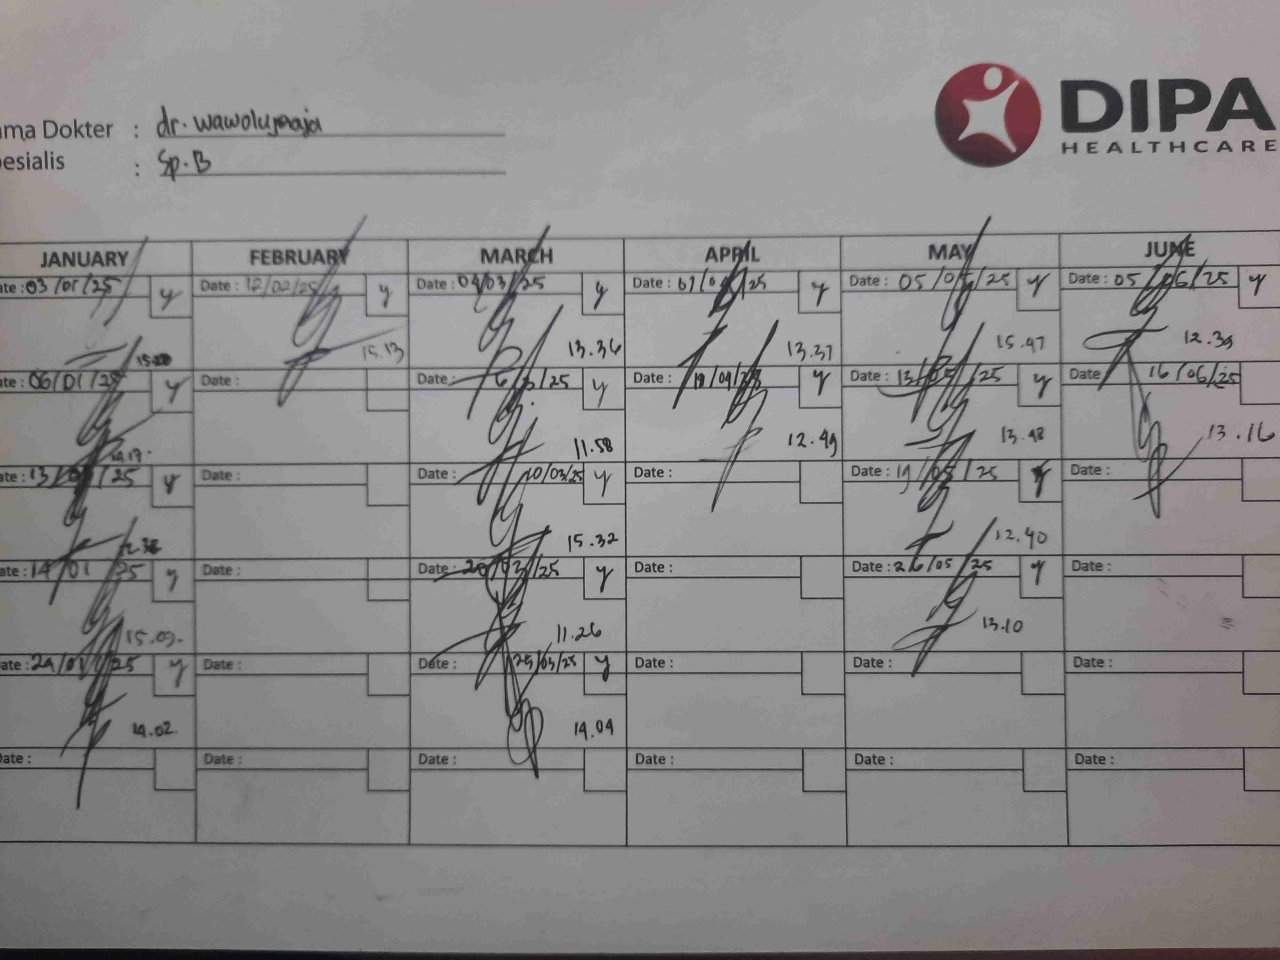 DIPA
HEALTHCARE
ama Dokter : dr. wawolumaja
pesialis : Sp.B
JANUARY FEBRUARY MARCH APRIL MAY JUNE
ate : 03/01/25 y Date : 12/02/25 y Date : 04/03/25 y Date : /25 y Date : 05/05/25 y Date : 05/06/25 y
15.13 13.36 13.37 15.47 12.39
ate : 06/01/25 y Date : Date : /25 y Date : y Date : 13/05/25 y Date 16/06/25
11.58 12.49 13.48 13.16
ate : 13/01/25 y Date : Date : 10/03/25 y Date : Date : 19/05/25 y Date :
15.32 12.40
ate : 14/01 25 y Date : Date : /03/25 y Date : Date : 26/05/25 y Date :
15.03. 11.26 13.10
ate : /25 y Date : Date : 25/03/25 y Date : Date : Date :
14.02 14.04
Date : Date : Date : Date : Date : Date :